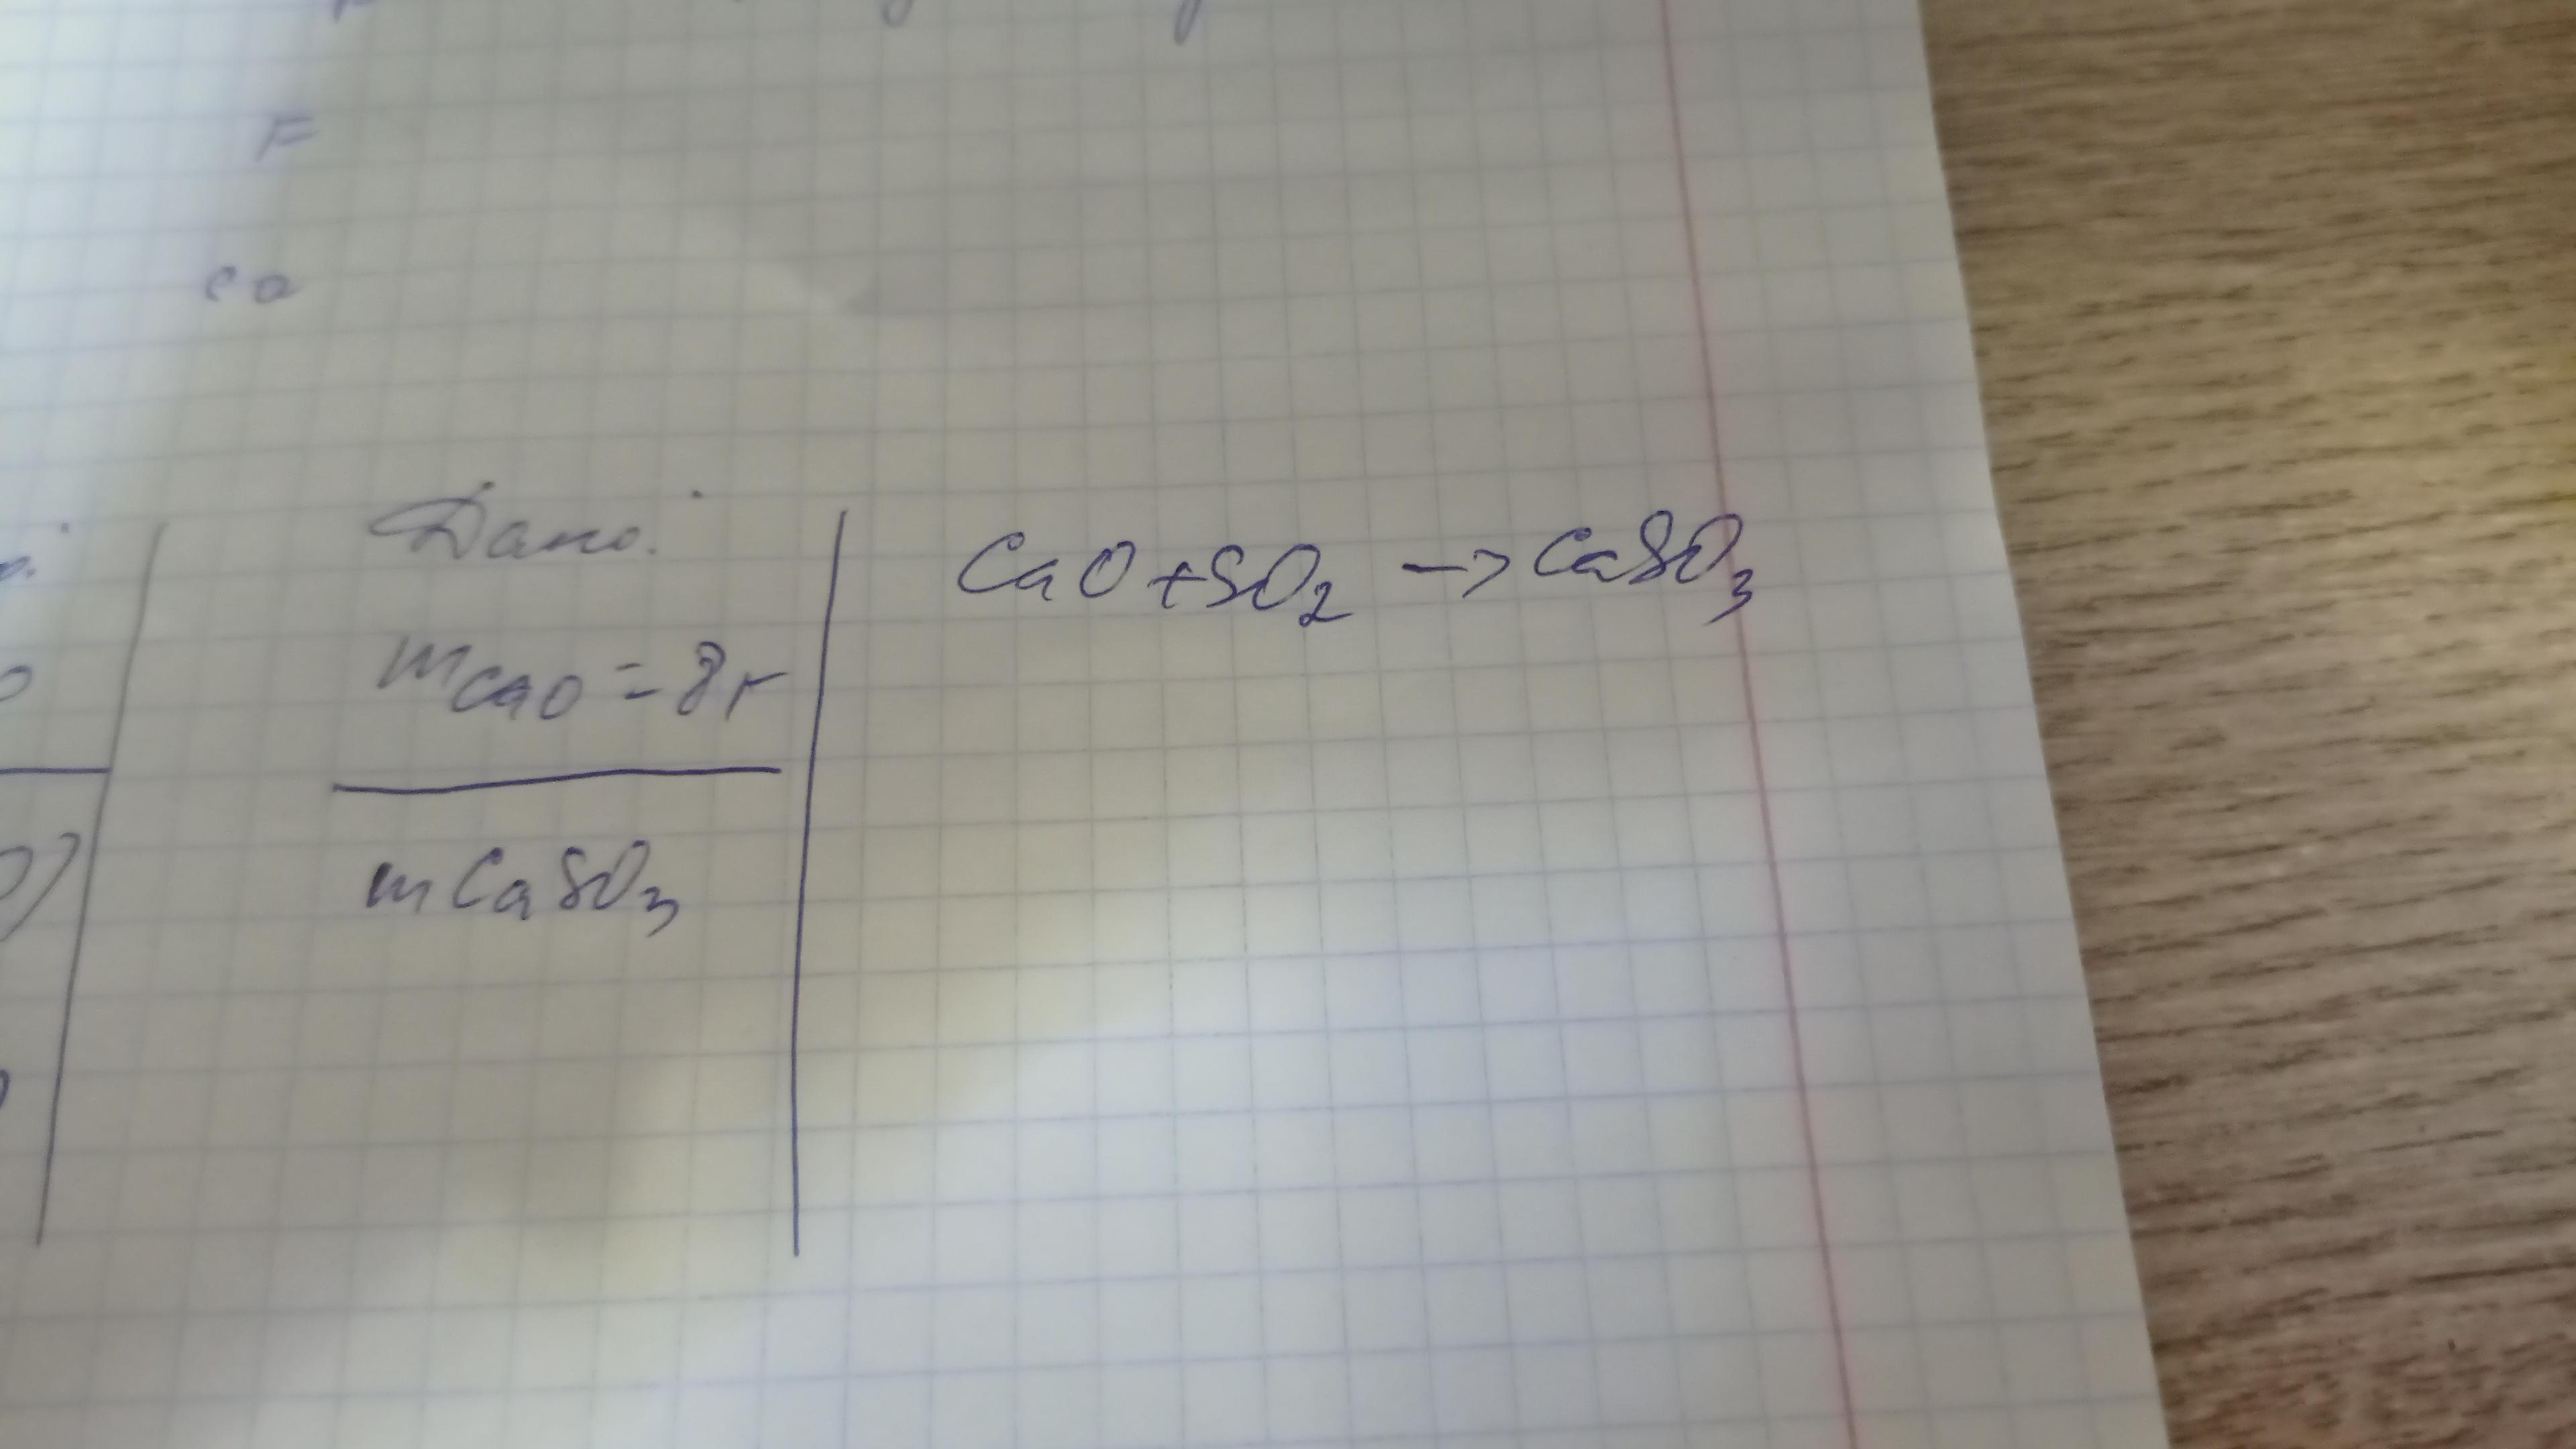 F
ca
Дано:
mCaO = 8г
mCaSO3
CaO + SO2 -> CaSO3